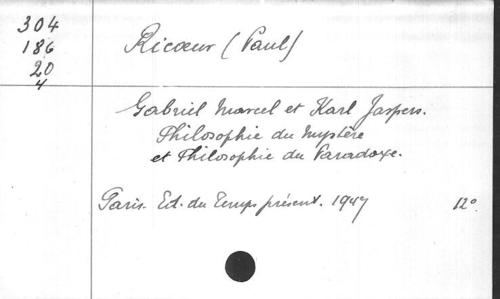 304
186
20
4
Ricœur (Paul)
Gabriel Marcel et Karl Jaspers.
Philosophie du Mystère
et Philosophie du Paradoxe.
Paris. Ed. du Temps présent. 1947 12°